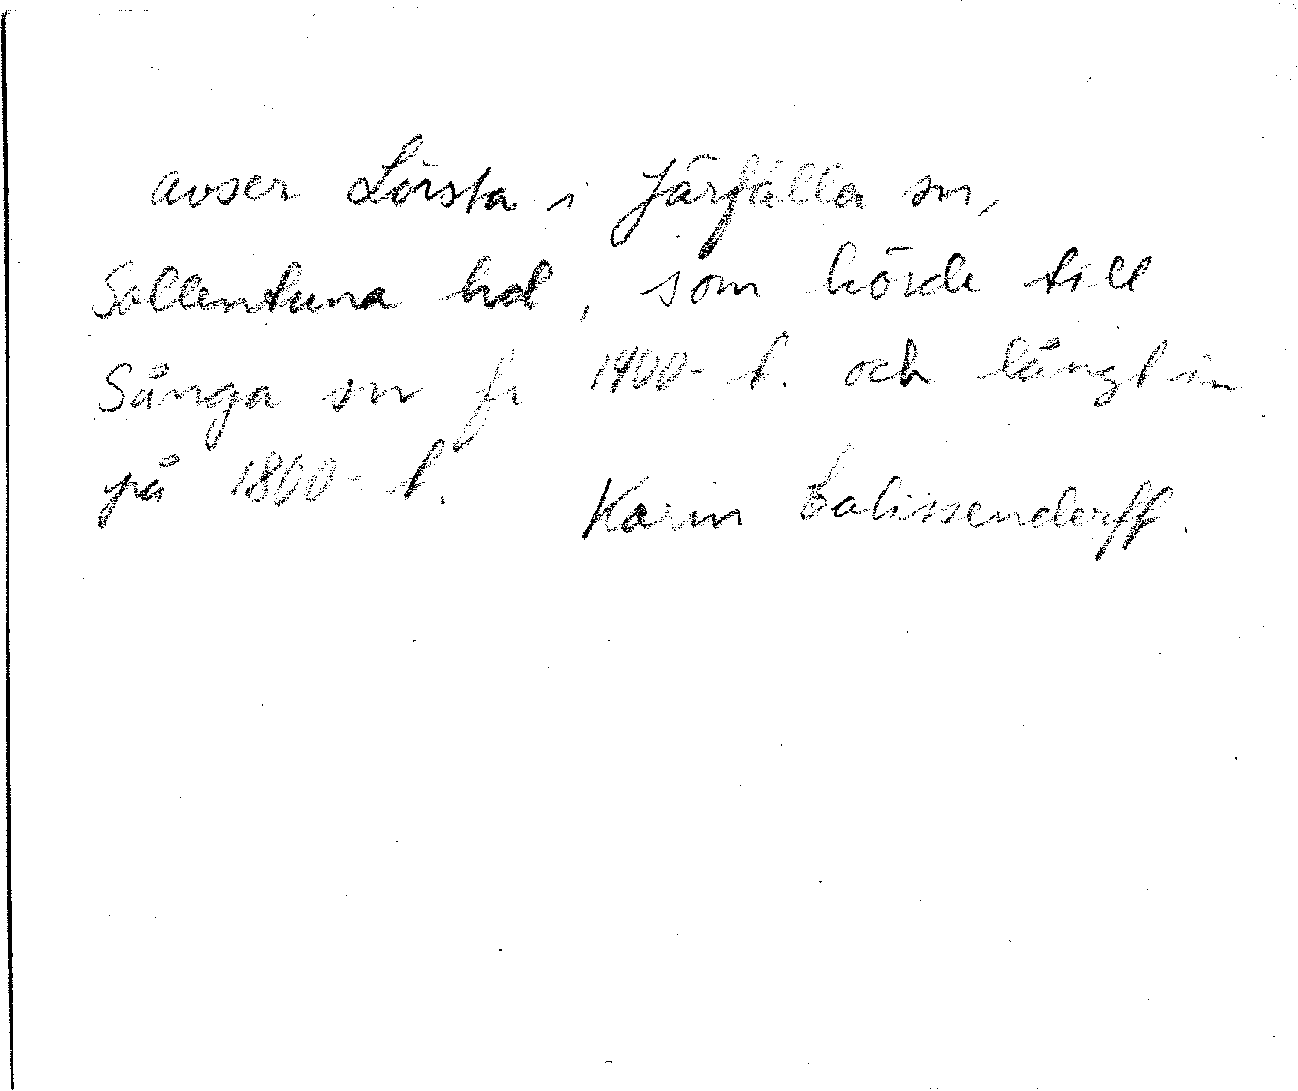 avser Lörsta i Järfälla sn,
Sollentuna hd, som hörde till
Sånga sn fr 1400-t. och långt in
på 1800-t. Karin Calissendorff.